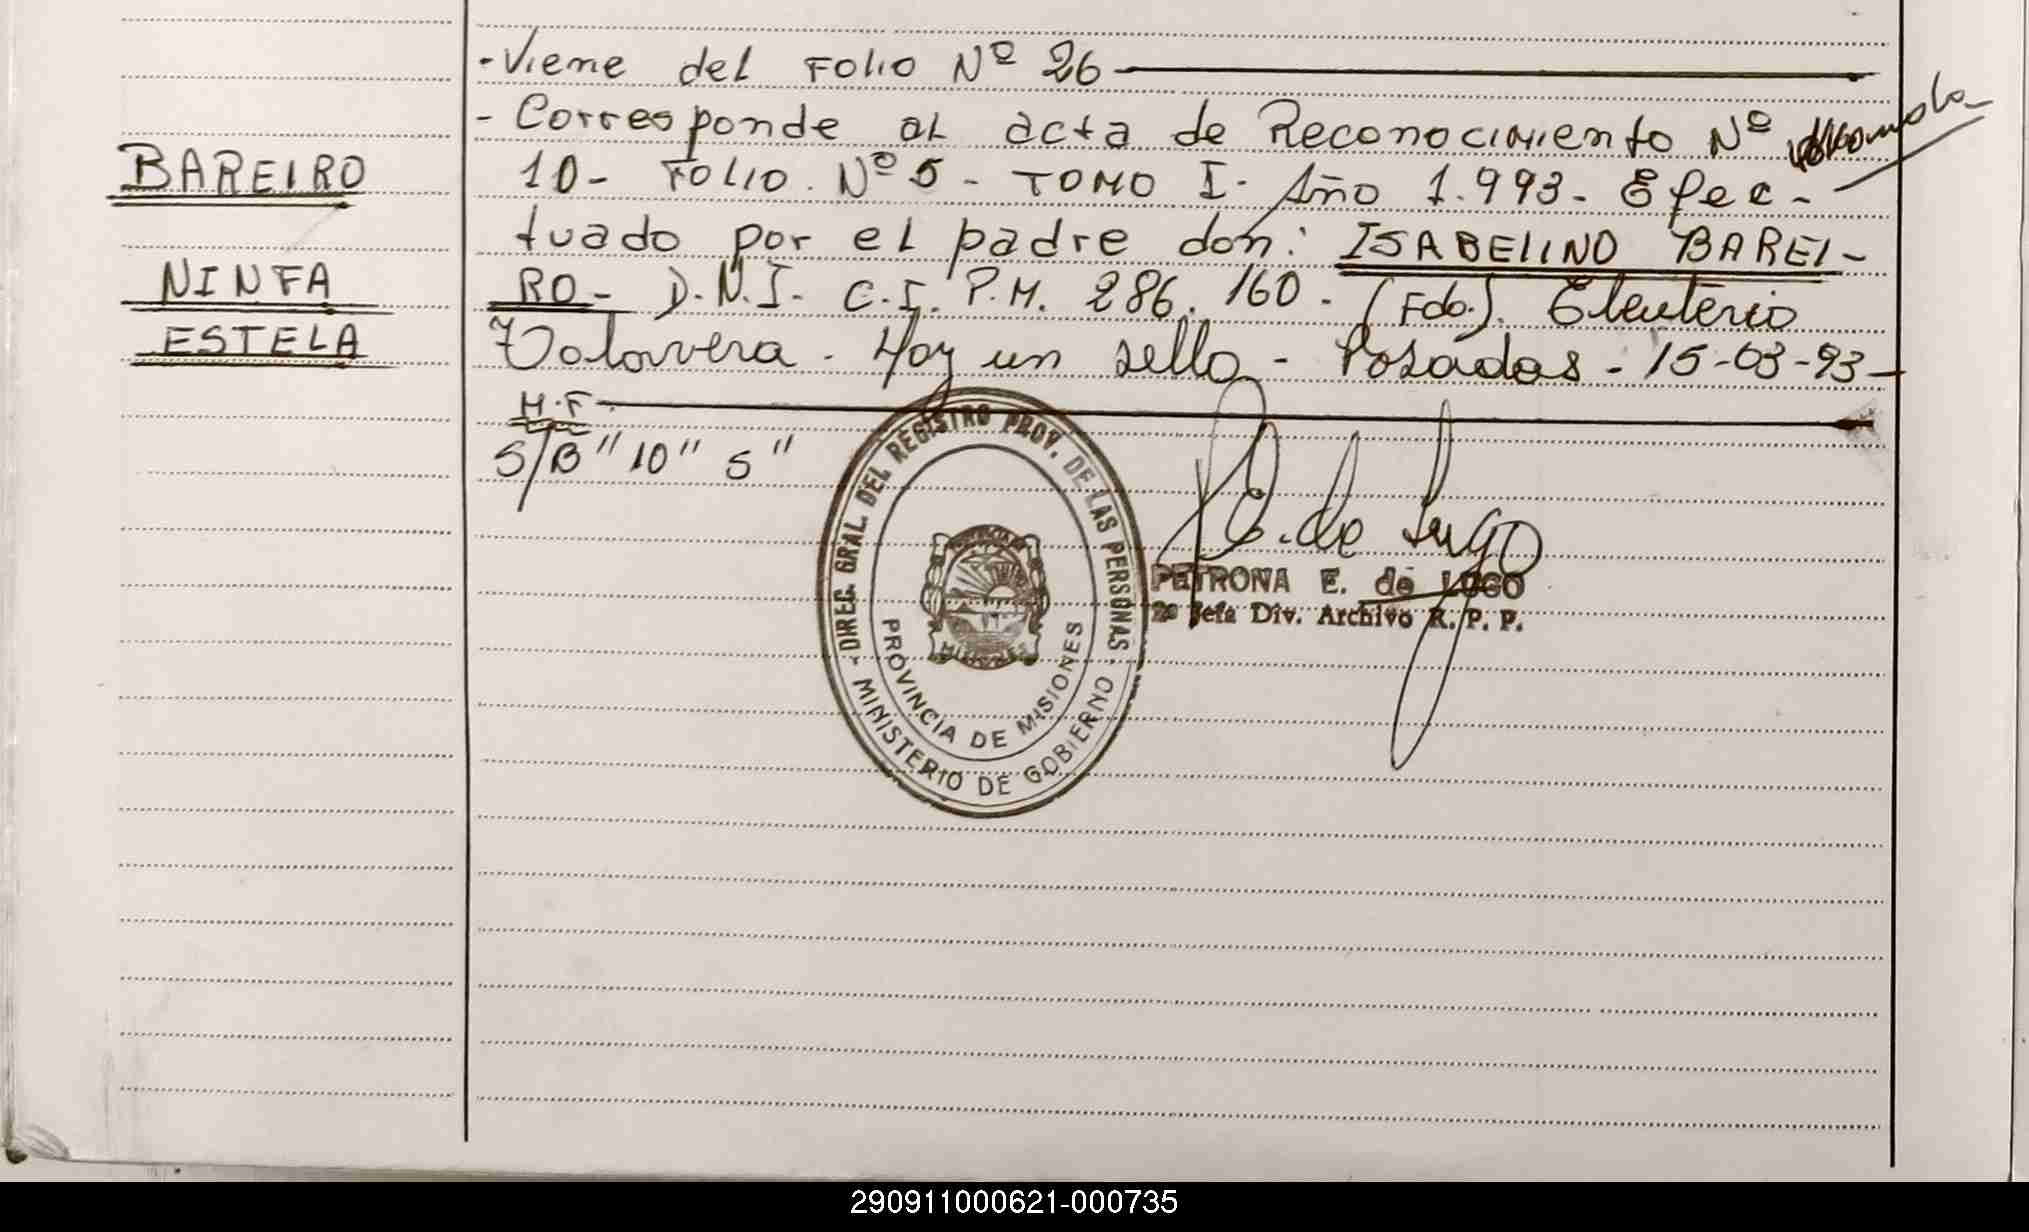 - Viene del Folio Nº 26
- Corresponde al acta de Reconocimiento Nº
BAREIRO
10- Folio. Nº 5 - TOMO I- Año 1.993- Efec-
tuado por el padre don: ISABELINO BAREI-
NINFA
RO- D.N.I- C.I. P.M. 286.160- (Fdo.). Eleuterio
ESTELA
Talavera - Hay un sello - Posadas - 15-03-93-
H.F
S/B "10" 5"
DIREC. GRAL. DEL REGISTRO PROV. DE LAS PERSONAS
MINISTERIO DE GOBIERNO
PROVINCIA DE MISIONES
MISIONES
E. de Lugo
PETRONA E. de LUGO
2º Jefa Div. Archivo R. P. P.
290911000621-000735